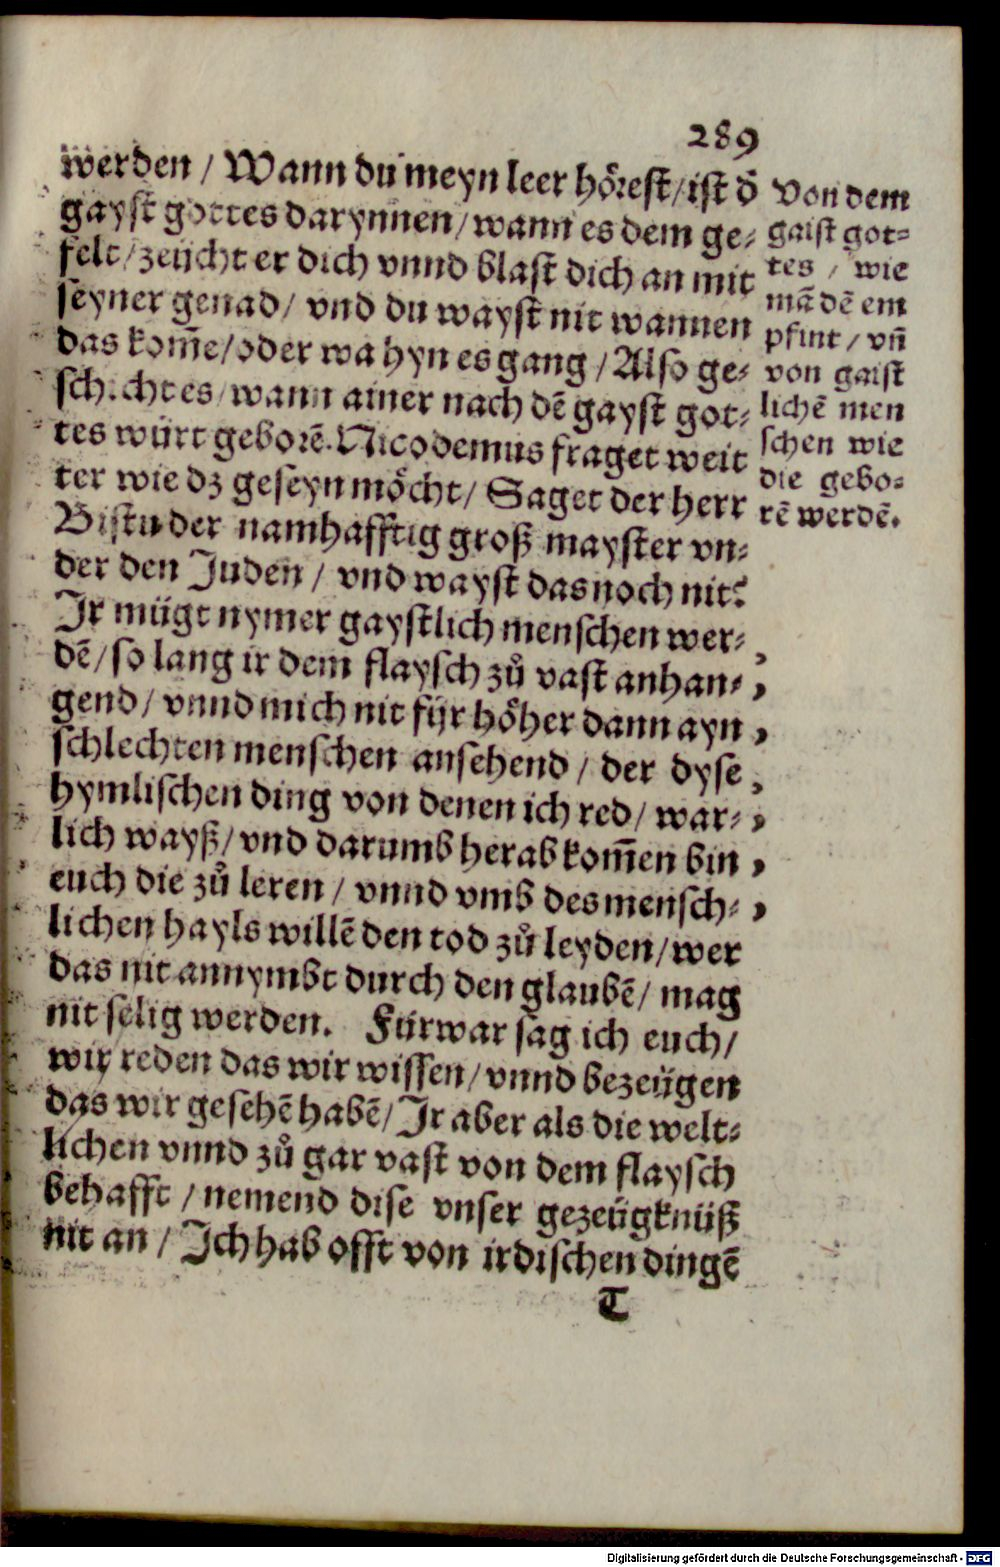 289
werden / Wann du meyn leer hörest / ist d̄
gayst gottes darynnen / wann es dem ge⸗
felt / zeücht er dich vnnd blast dich an mit
seyner genad / vnd du wayst nit wannen
das kom̄e / oder wa hyn es gang / Also ge⸗
schicht es / wann ainer nach dē gayst got⸗
tes würt geborē. Nicodemus fraget weit
ter wie dz geseyn möcht / Saget der herr
Bistu der namhafftig groß mayster vn⸗
der den Juden / vnd wayst das noch nit?
Ir mügt nymer gaystlich menschen wer⸗
dē / so lang ir dem flaysch zů vast anhan⸗
gend / vnnd mich nit für höher dann ayn
schlechten menschen ansehend / der dyse
hymlischen ding von denen ich red / war⸗
lich wayß / vnd darumb herab kom̄en bin
euch die zů leren / vnnd vmb des mensch⸗
lichen hayls willē den tod zů leyden / wer
das nit annymbt durch den glaubē / mag
nit selig werden. Fürwar sag ich euch /
wir reden das wir wissen / vnnd bezeügen
das wir gesehē habē / Ir aber als die welt⸗
lichen vnnd zů gar vast von dem flaysch
behafft / nemend dise vnser gezeügknüß
nit an / Ich hab offt von irdischen dingē
T
Von dem
gaist got⸗
tes / wie
mā dē em
pfint / vn̄
von gaist
lichē men
schen wie
die gebo⸗
rē werdē.
Digitalisierung gefördert durch die Deutsche Forschungsgemeinschaft - DFG